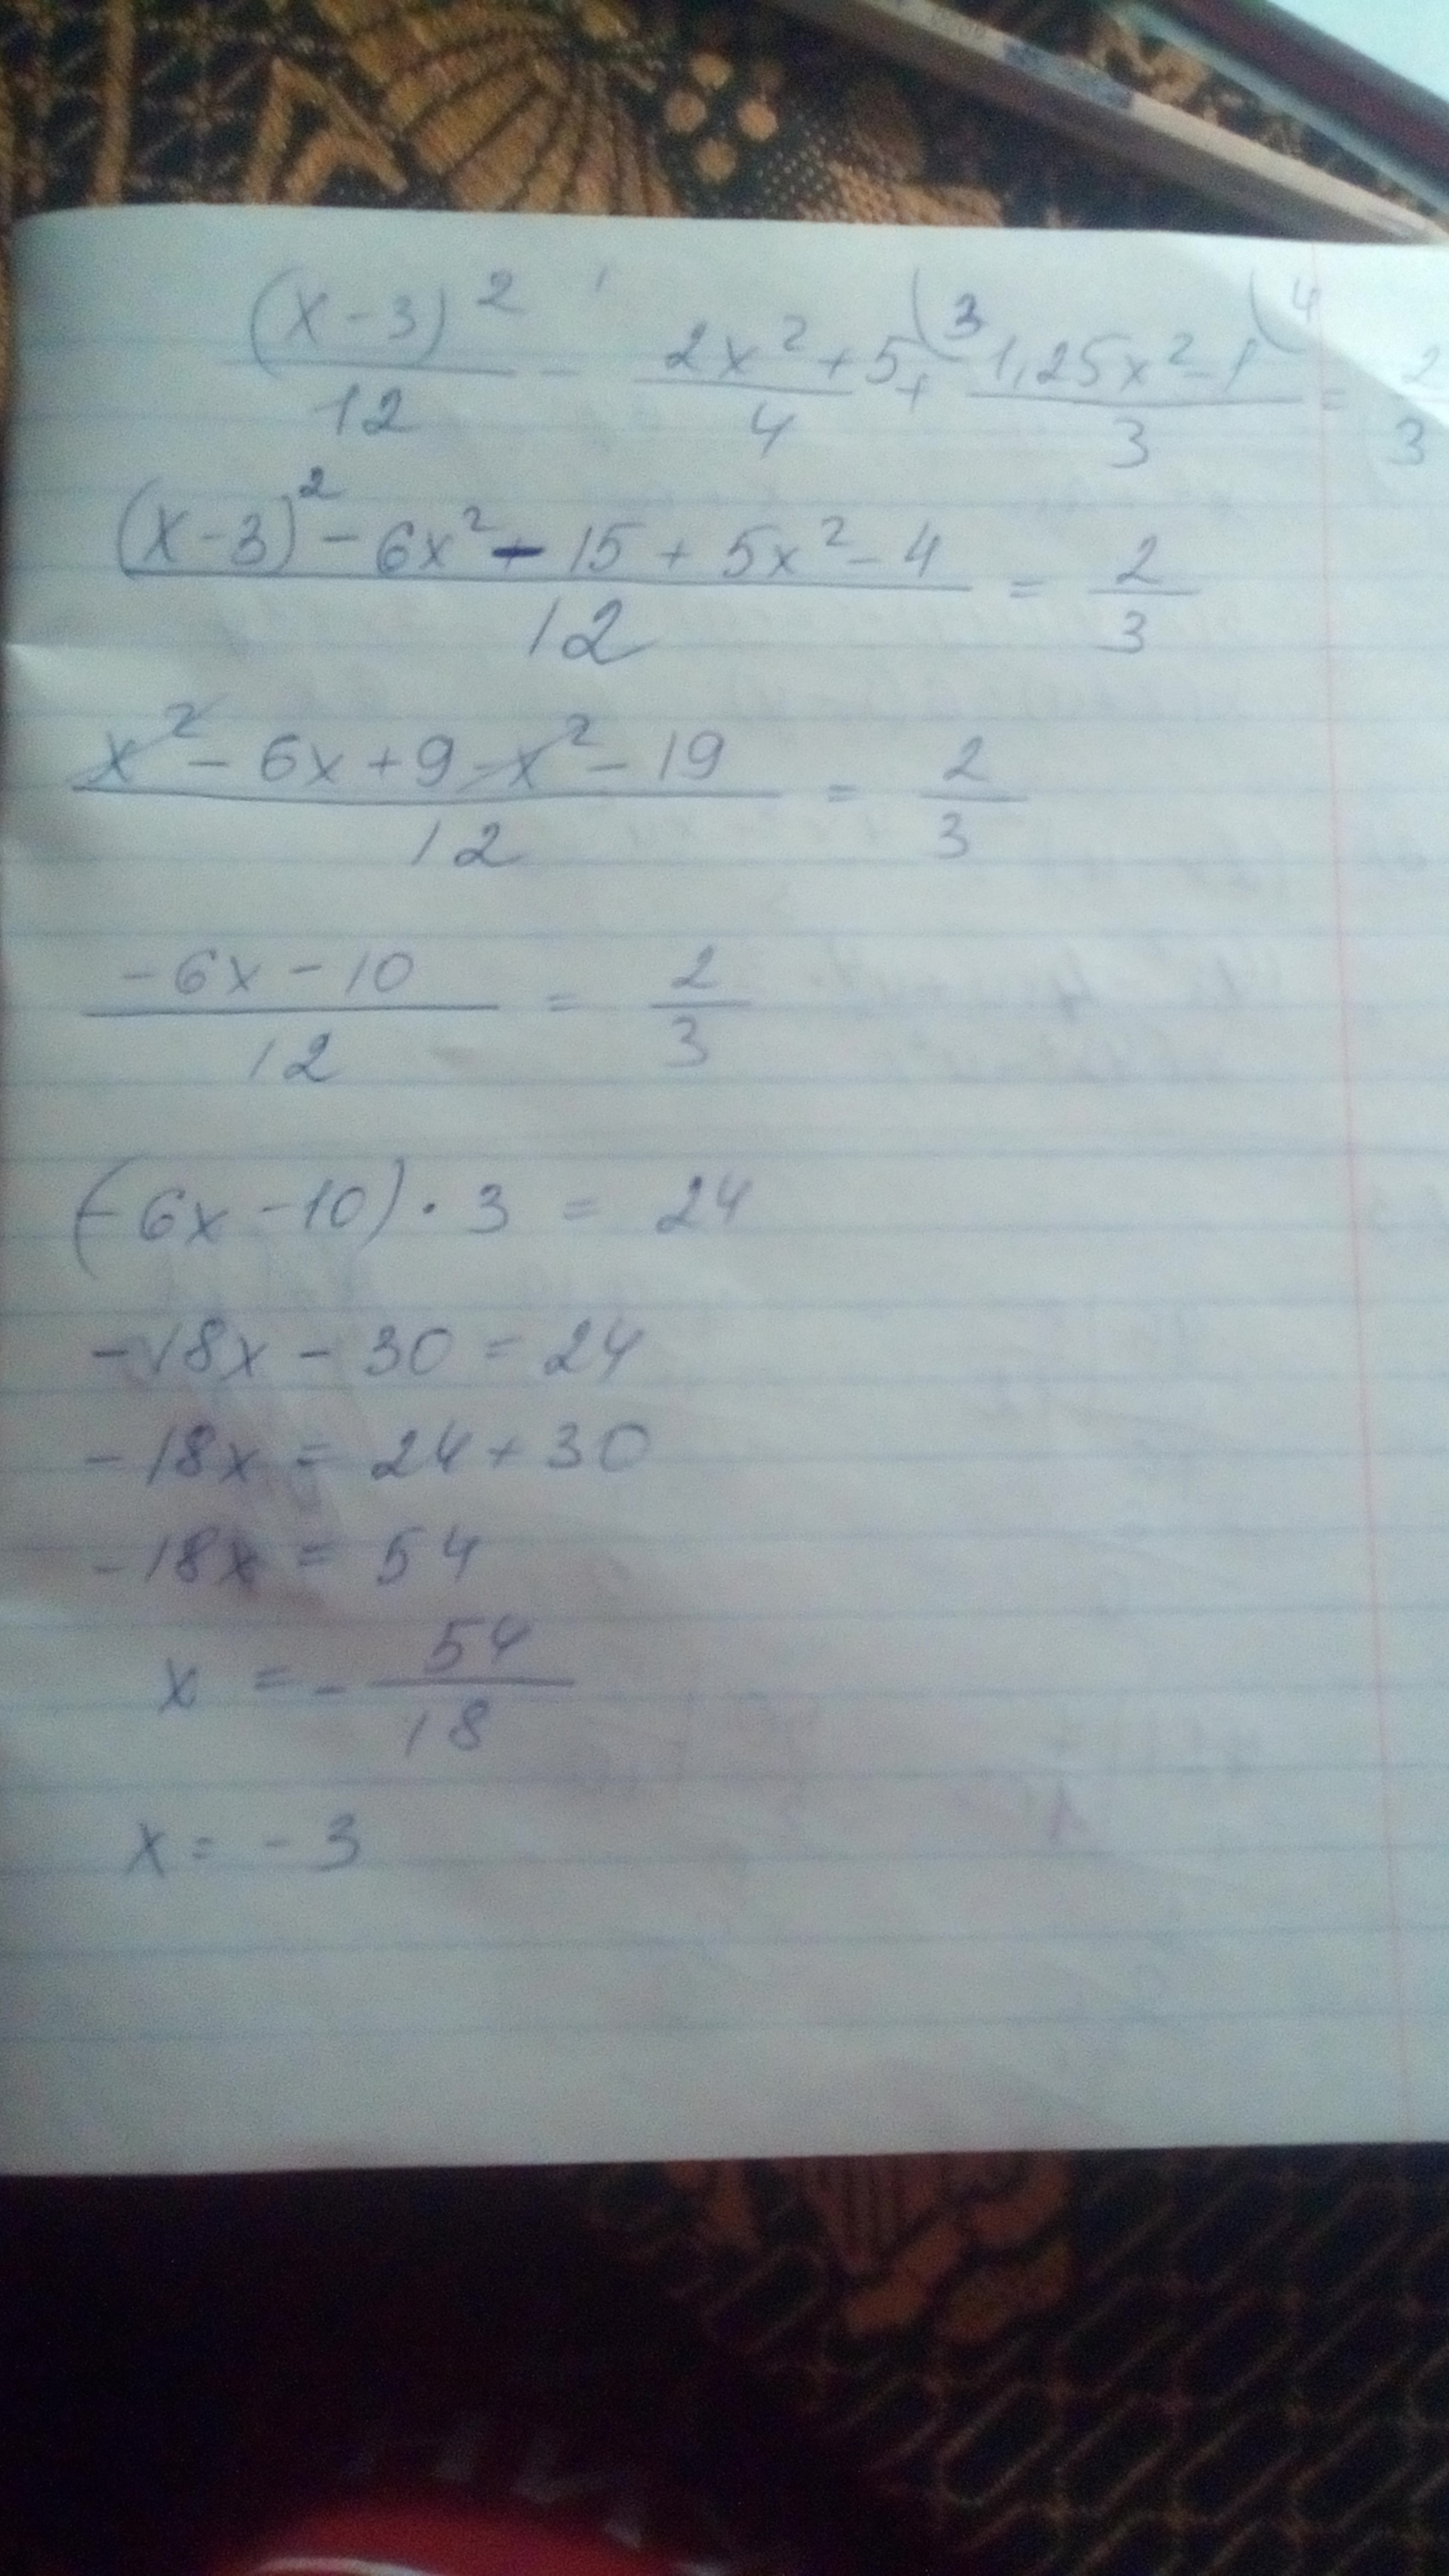 (x-3)²/12 - 2x²+5/4 (3 + 1,25x²-1/3 (4 = 2/3
(x-3)² - 6x² - 15 + 5x² - 4/12 = 2/3
x² - 6x + 9 - x² - 19/12 = 2/3
-6x - 10/12 = 2/3
(-6x - 10) · 3 = 24
-18x - 30 = 24
-18x = 24 + 30
-18x = 54
x = - 54/18
x = - 3